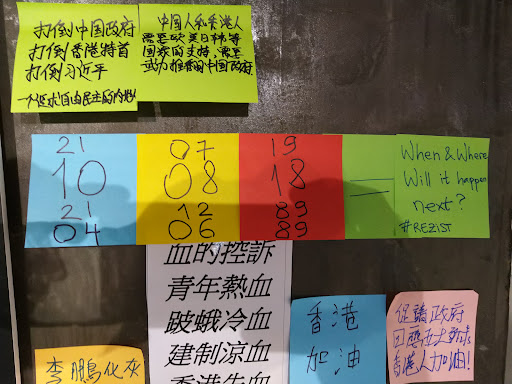 打倒中国政府
打倒香港特首
打倒习近平
一个追求自由民主的内地人
中国人和香港人
需要欧美日韩等
国家的支持,需要
武力推番的中国政府
21
10
21
04
07
08
12
06
19
18
89
89
=
When & Where
Will it happen
next?
#REZIST
血的控訴
青年熱血
跛蛾冷血
建制涼血
香港失血
香港
加油
促請政府
回應五大訴求
香港人加油!
李鵬化灰